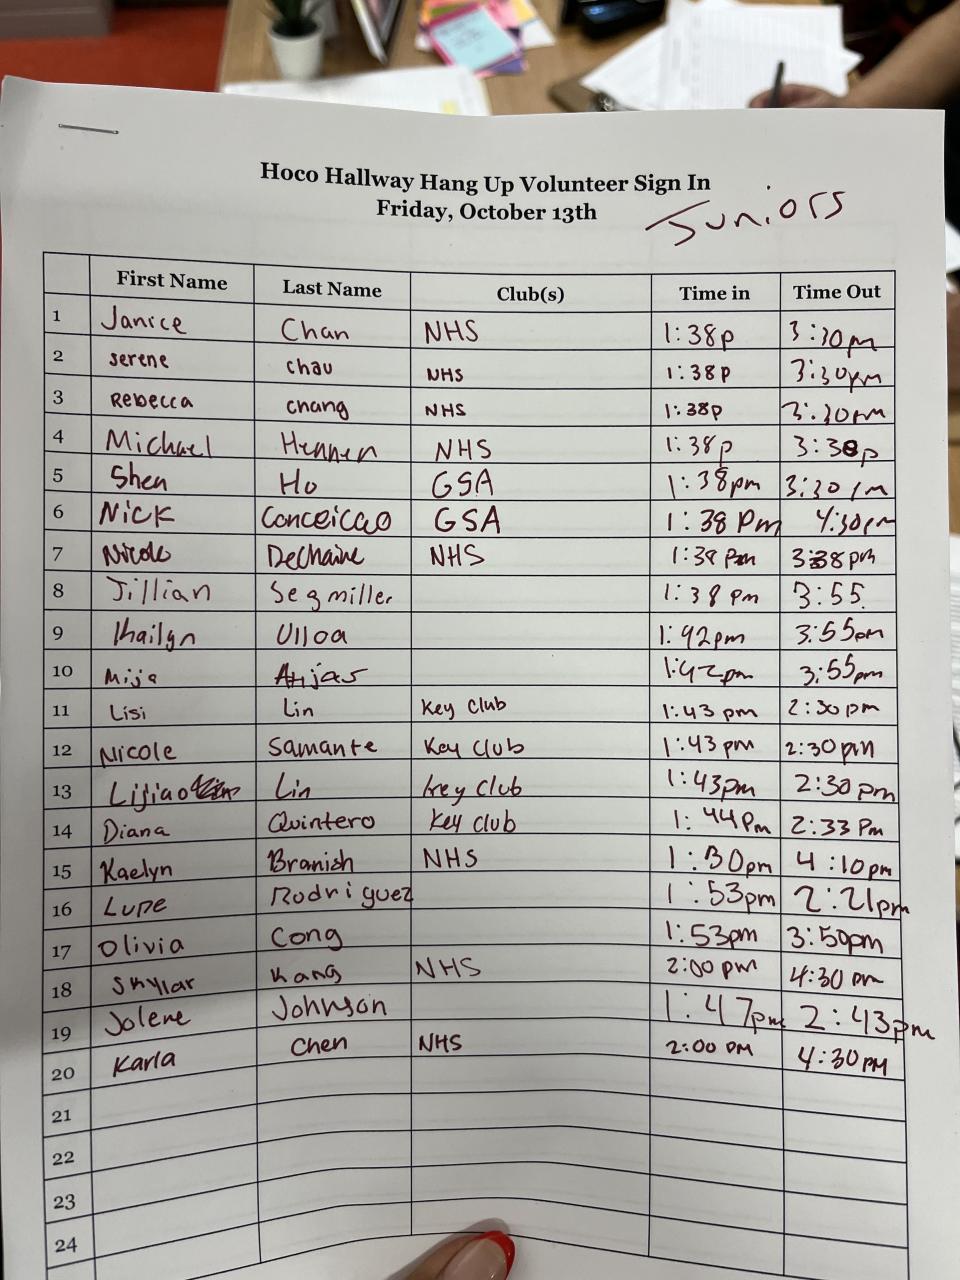 Hoco Hallway Hang Up Volunteer Sign In
Friday, October 13th
Juniors
First Name Last Name Club(s) Time in Time Out
1 Janice Chan NHS 1:38p 3:30pm
2 serene chau NHS 1:38p 3:30pm
3 Rebecca chang NHS 1:38p 3:30pm
4 Michael Hennen NHS 1:38p 3:38p
5 Shea Ho GSA 1:38pm 3:30pm
6 Nick Conceicao GSA 1:38 Pm 4:30pm
7 Nicole Dechaine NHS 1:38 Pm 3:38pm
8 Jillian Segmiller 1:38 pm 3:55
9 Khailyn Ulloa 1:42pm 3:55pm
10 Mija 1:42pm 3:55pm
11 Lisi Lin Key Club 1:43 pm 2:30pm
12 Nicole Samante Key Club 1:43pm 2:30pm
13 Lijiao Lin key club 1:43pm 2:30pm
14 Diana Quintero Key club 1:44Pm 2:33 Pm
15 Kaelyn Branish NHS 1:30pm 4:10pm
16 Lupe Rodriguez 1:53pm 2:21pm
17 Olivia Cong 1:53pm 3:50pm
18 Skyllar Kang NHS 2:00 pm 4:30 pm
19 Jolene Johnson 1:47pm 2:43pm
20 Karla Chen NHS 2:00 PM 4:30PM
21
22
23
24